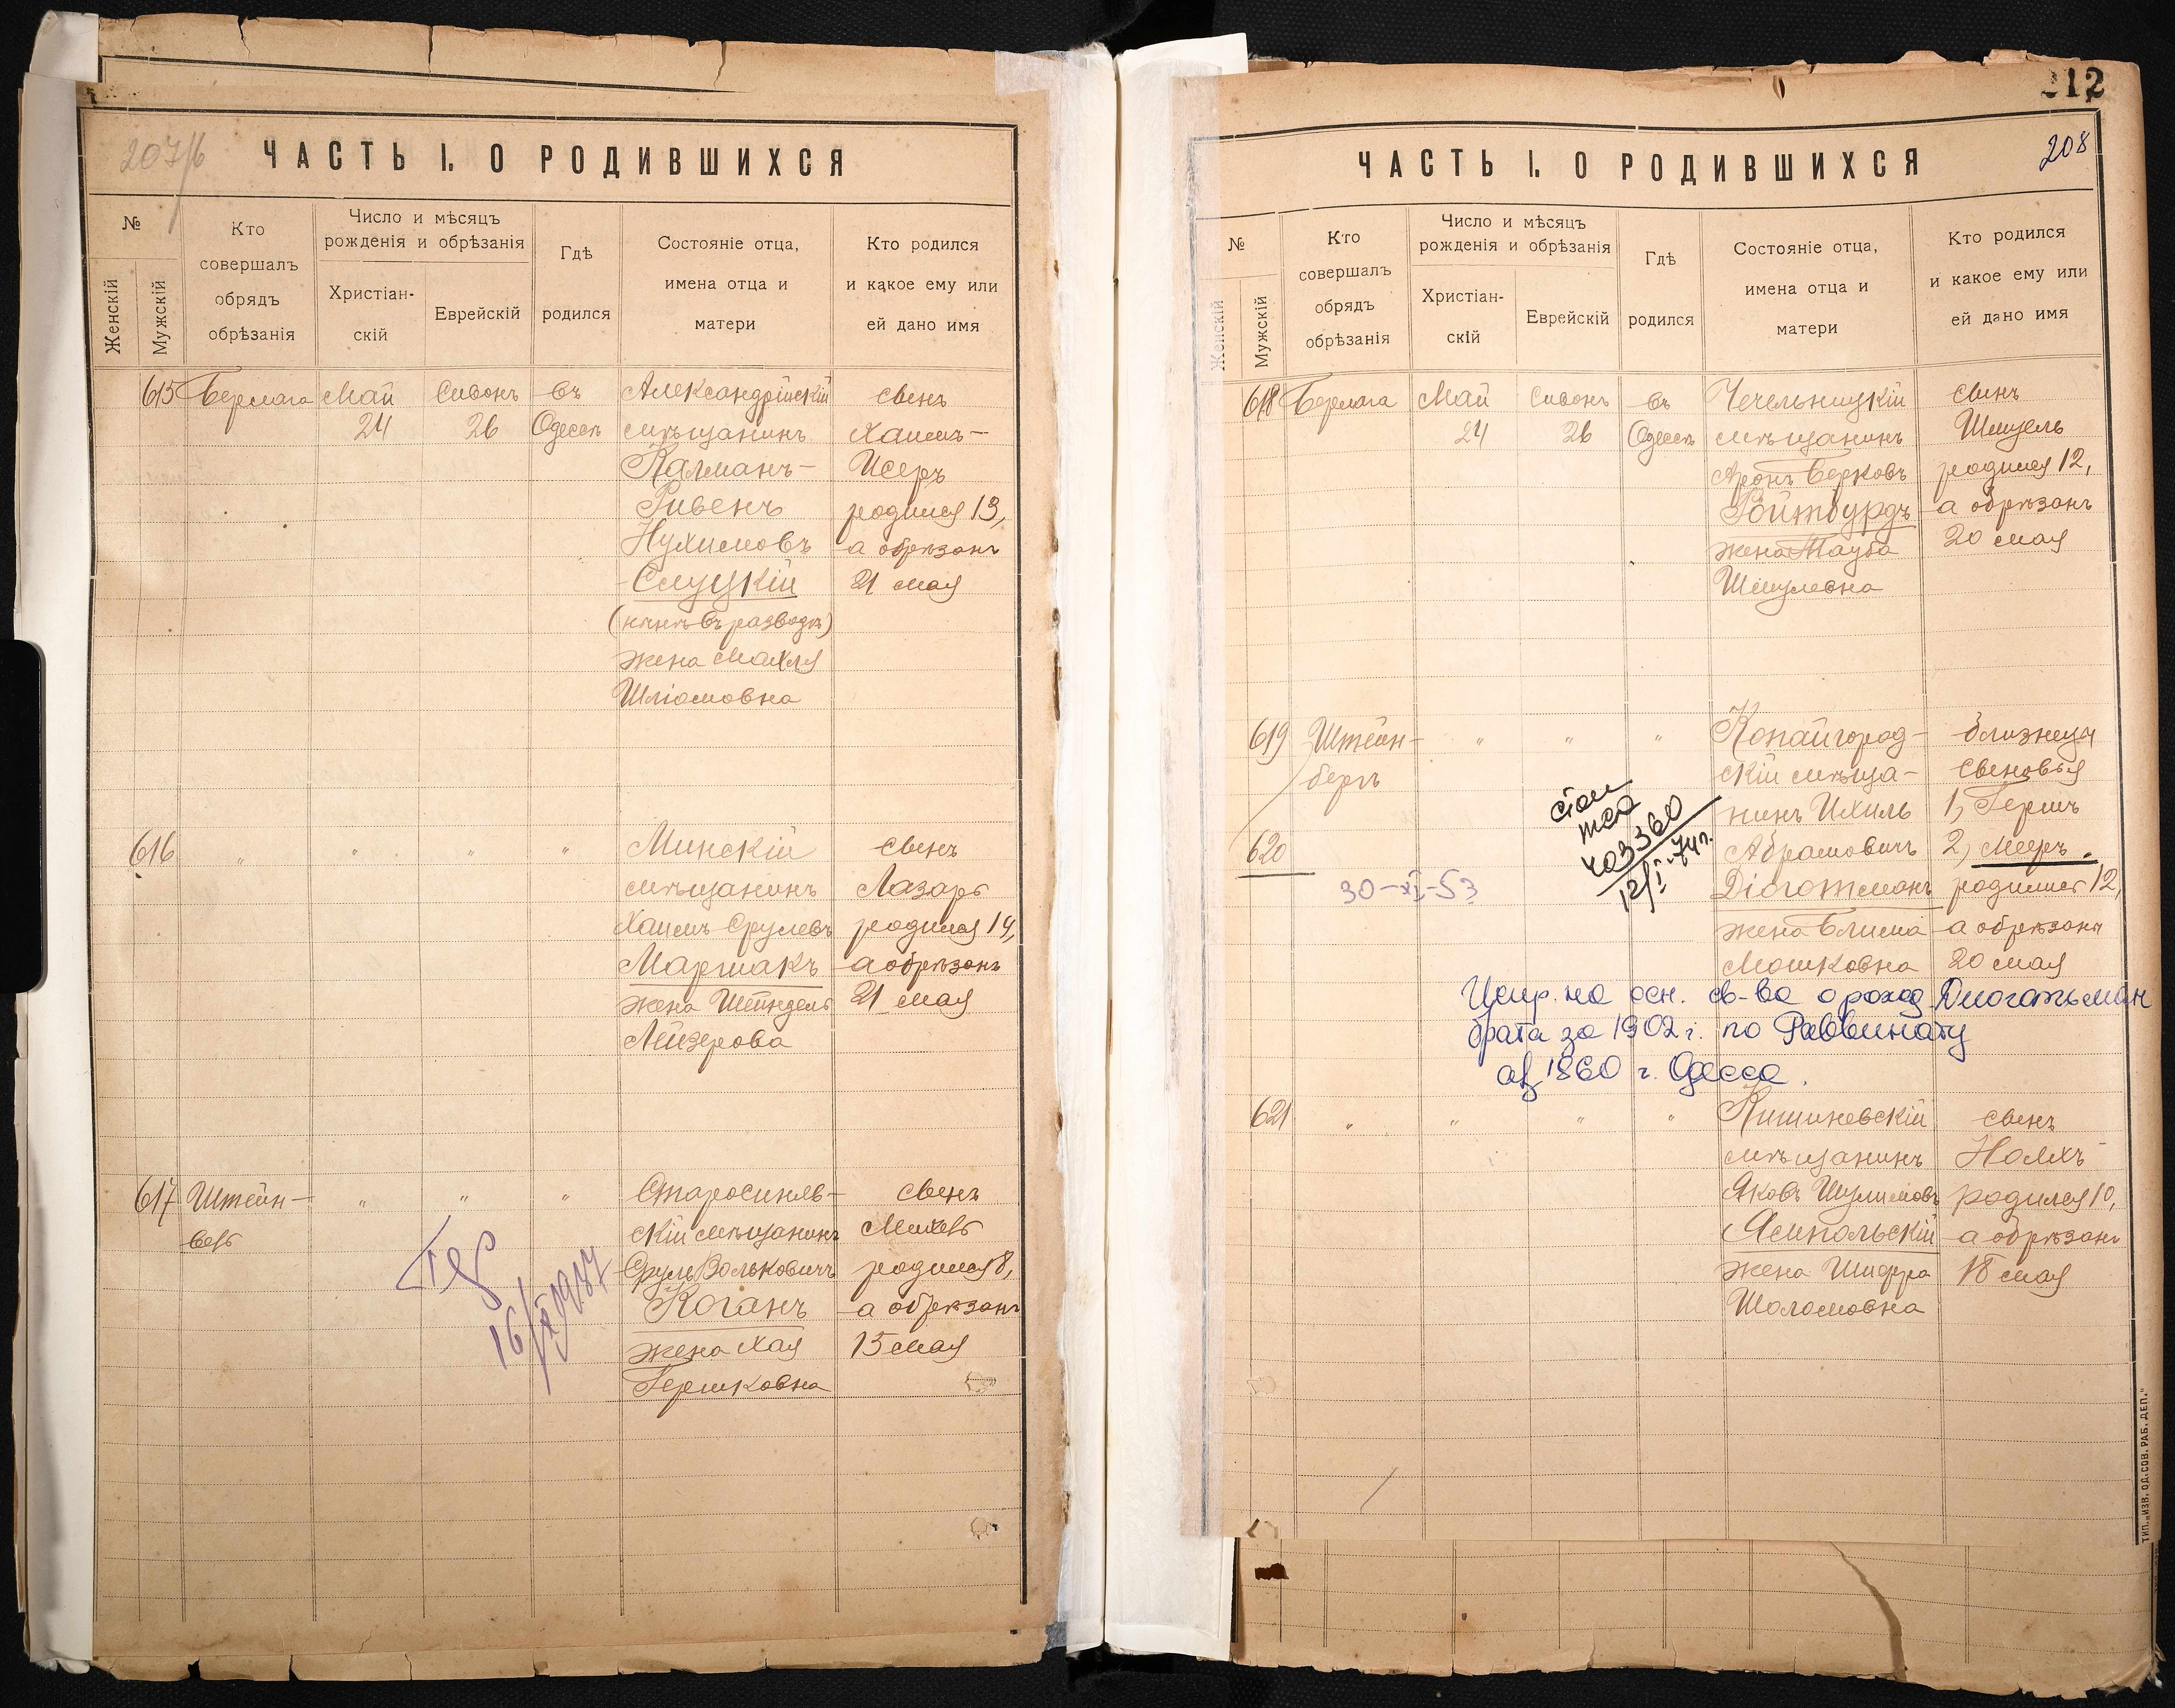 207/б
ЧАСТЬ I. О РОДИВШИХСЯ
№
Женскій
Мужскій
Кто
совершалъ
обрядъ
обрѣзанія
Число и мѣсяцъ
рожденія и обрѣзанія
Христіан-
скій
Еврейскій
Гдѣ
родился
Состояніе отца,
имена отца и
матери
Кто родился
и какое ему или
ей дано имя
615 Берлага Май Сивонъ въ Александрійскій сынъ
24 26 Одессѣ мѣщанинъ Хаимъ-
Калманъ- Исеръ
Рувенъ родился 13,
Нухимовъ а обрѣзанъ
Слуцкій 21 мая
(нынѣ въ разводѣ)
жена Махля
Шліомовна
616 " " " " Минскій сынъ
мѣщанинъ Лазарь
Хаимъ Срулевъ родился 14,
Маршакъ а обрѣзанъ
жена Шейндель 21 мая
Лейзерова
617 Штейн- " " " Старосиняв- сынъ
бергъ скій мѣщанинъ
Сруль Вольковичъ родился 8,
Коганъ а обрѣзанъ
жена Хая 15 мая
Гершковна
212
208
ЧАСТЬ I. О РОДИВШИХСЯ
№
Женскій
Мужскій
Кто
совершалъ
обрядъ
обрѣзанія
Число и мѣсяцъ
рожденія и обрѣзанія
Христіан-
скій
Еврейскій
Гдѣ
родился
Состояніе отца,
имена отца и
матери
Кто родился
и какое ему или
ей дано имя
618 Берлага Май Сивонъ въ Чечельницкій сынъ
24 26 Одессѣ мѣщанинъ Шмуель
Аронъ Берковъ родился 12,
Ройтбурдъ а обрѣзанъ
жена Тауба 20 мая
Шмулевна
619 Штейн- " " " Копайгород- близнецы
бергъ скій мѣща- сыновья
нинъ Ихиль 1, Гершъ
620 Абрамовичъ 2, Мееръ.
Діоготманъ родились 12,
жена Блима а обрѣзаны
Мошковна 20 мая
403360
12/I-74г.
30-XI-53
Испр. на осн. св-ва о рожд. Диогатьман
брата за 1902 г. по Раввинату
аз 1860 г. Одесса.
621 " " " " Кишиневскій сынъ
мѣщанинъ
Яковъ Шулимовъ родился 10,
Ямпольскій а обрѣзанъ
жена Шифра 18 мая
Шоломовна
ТИП. „ИЗВ. ОД. СОВ. РАБ. ДЕП."